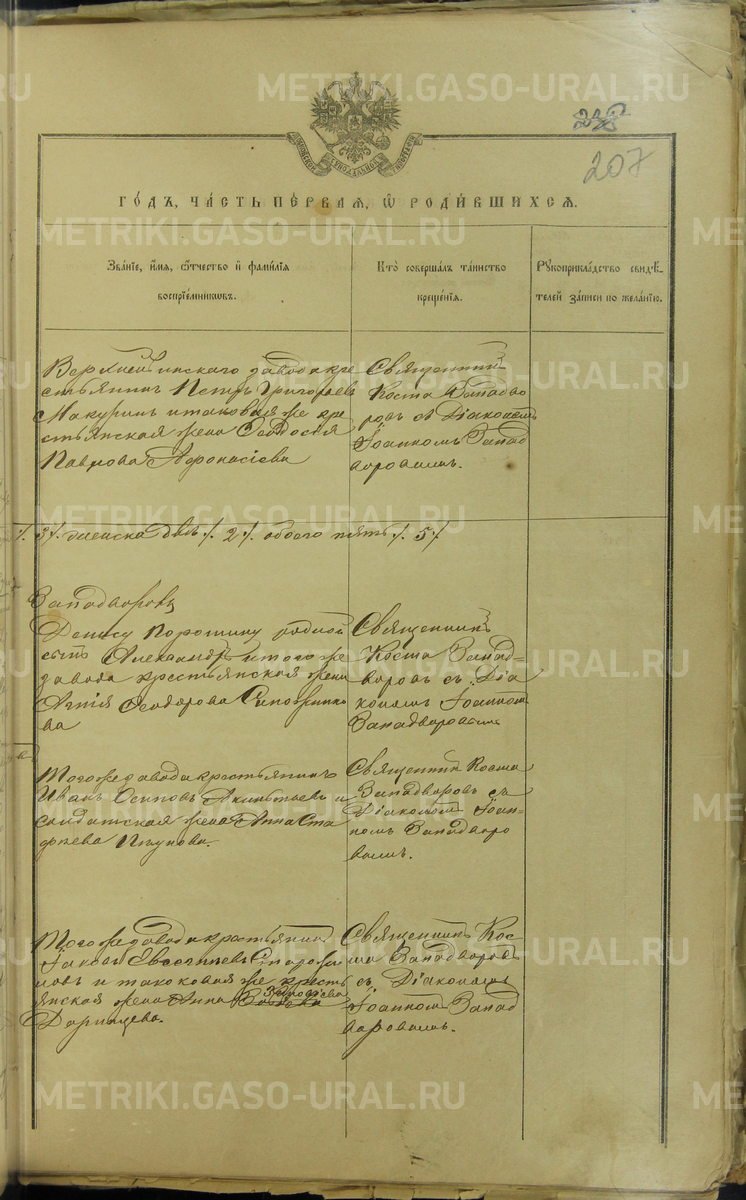 METRIKI.GASO-URAL.RU
238
207
ГО́ДЪ, ЧА́СТЬ ПЕ́РВАЯ, Ѡ РОДИ́ВШИХСЯ.
Зва́нїе, и́мя, ѻ́тчество и фами́лїя
воспрїе́мникѡвъ.
Кто̀ соверша́лъ та́инство
креще́нїя.
Рꙋкоприкла́дство свидѣ́-
телей за́писи по жела́нїю.
завода кре
стьянинъ Петръ Григорьевъ
Макуринъ и таковая же кре
стьянская жена Ѳеодосія
Павлова Аѳонасіева
Священникъ
Коста Западво
ровъ съ Діакономъ
Іоанномъ Запад
воровымъ.
3/. женска двѣ /. 2 /. обоего пять /. 5 /.
Западворовъ
Денису Порошину родной
сынъ Александръ и того же
завода крестьянская жена
Агнія Ѳеодорова
ва
Священникъ
Коста Запад=
воровъ съ Діа
кономъ Іоанномъ
Западворовымъ
Того же завода крестьянинъ
Иванъ Осиповъ и
солдатская жена Анна Ста
фіева
Священникъ Коста
Западворовъ съ
Діакономъ Іоан-
номъ Западворо
вымъ.
Того же завода крестьянинъ
Іаковъ
и таковая же кресть
янская жена Анна
Священникъ Кос-
та Западворовъ
съ Діакономъ
Іоанномъ Запад
воровымъ.